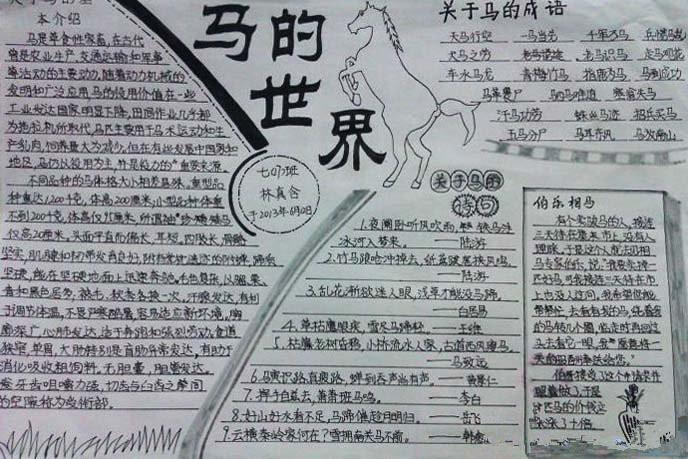 关于马的基
本介绍
马是草食性家畜,在古代
曾是农业生产、交通运输和军事
等活动的主要动力,随着动力机械的
发明和广泛应用,马的役用价值在一些
工业发达国家明显下降,田间作业几乎部
为拖拉机所取代,马匹主要用于马术运动和生
产乳肉,饲养量大为减少,但在有些发展中国家和
地区,马仍以役用为主,并是役力的重要来源
不同品种的马体格大小相差悬殊,重型品
种重达1200千克,体高200厘米,小型品种体重
不到200千克,体高仅95厘米,所谓袖珍矮马
仅高20厘米。头面平直而偏长,耳短,四肢长,骨骼
坚实,肌腱和韧带发育良好,附有掌枕遗迹的附蝉,蹄质
坚硬,能在坚硬地面上迅速奔驰。毛色复杂,以骝、栗、
青和黑色居多,被毛、秋冬各换一次,汗腺发达,有利
于调节体温,不畏严寒酷暑,容易适应新环境,胸
廓深广,心肺发达,适于奔跑和强烈劳动,食道
狭窄,单胃,大肠特别是盲肠异常发达,有助于
消化吸收粗饲料,无胆囊,胆管发达。
齿牙齿咀嚼力强,切齿与臼齿之间
的空隙称为受衔部
马的世界
七(7)班
林真含
于2013年6月0日
关于马的成语
天马行空 一马当先 千军万马 兵慌马乱
犬马之劳 老马识途 走马观花
车水马龙 青梅竹马 指鹿为马 马到成功
马革裹尸 驷马难追 塞翁失马
汗马功劳 蛛丝马迹 招兵买马
五马分尸 马耳东风 马放南山
关于马的
诗句
1.夜阑卧听风吹雨,铁马
冰河入梦来。——陆游
2.竹马踉跄冲掉去,纸鸢跋扈挟风鸣。
——陆游
3.乱花渐欲迷人眼,浅草才能没马蹄。
——白居易
4.草枯鹰眼疾,雪尽马蹄轻。——王维
5.枯藤老树昏鸦,小桥流水人家,古道西风瘦马。
——马致远
6.马寒识路真疲路,蝉到吞声尚有声。——黄景仁
7.挥手自兹去,萧萧班马鸣。——李白
8.好山好水看不足,马蹄催趁月明归。——岳飞
9.云横秦岭家何在?雪拥南关马不前。——韩愈
伯乐相马
有个卖骏马的人,接连
三天待在集市上,没有人
理睬,于是这个人就去见相
马专家伯乐,说: